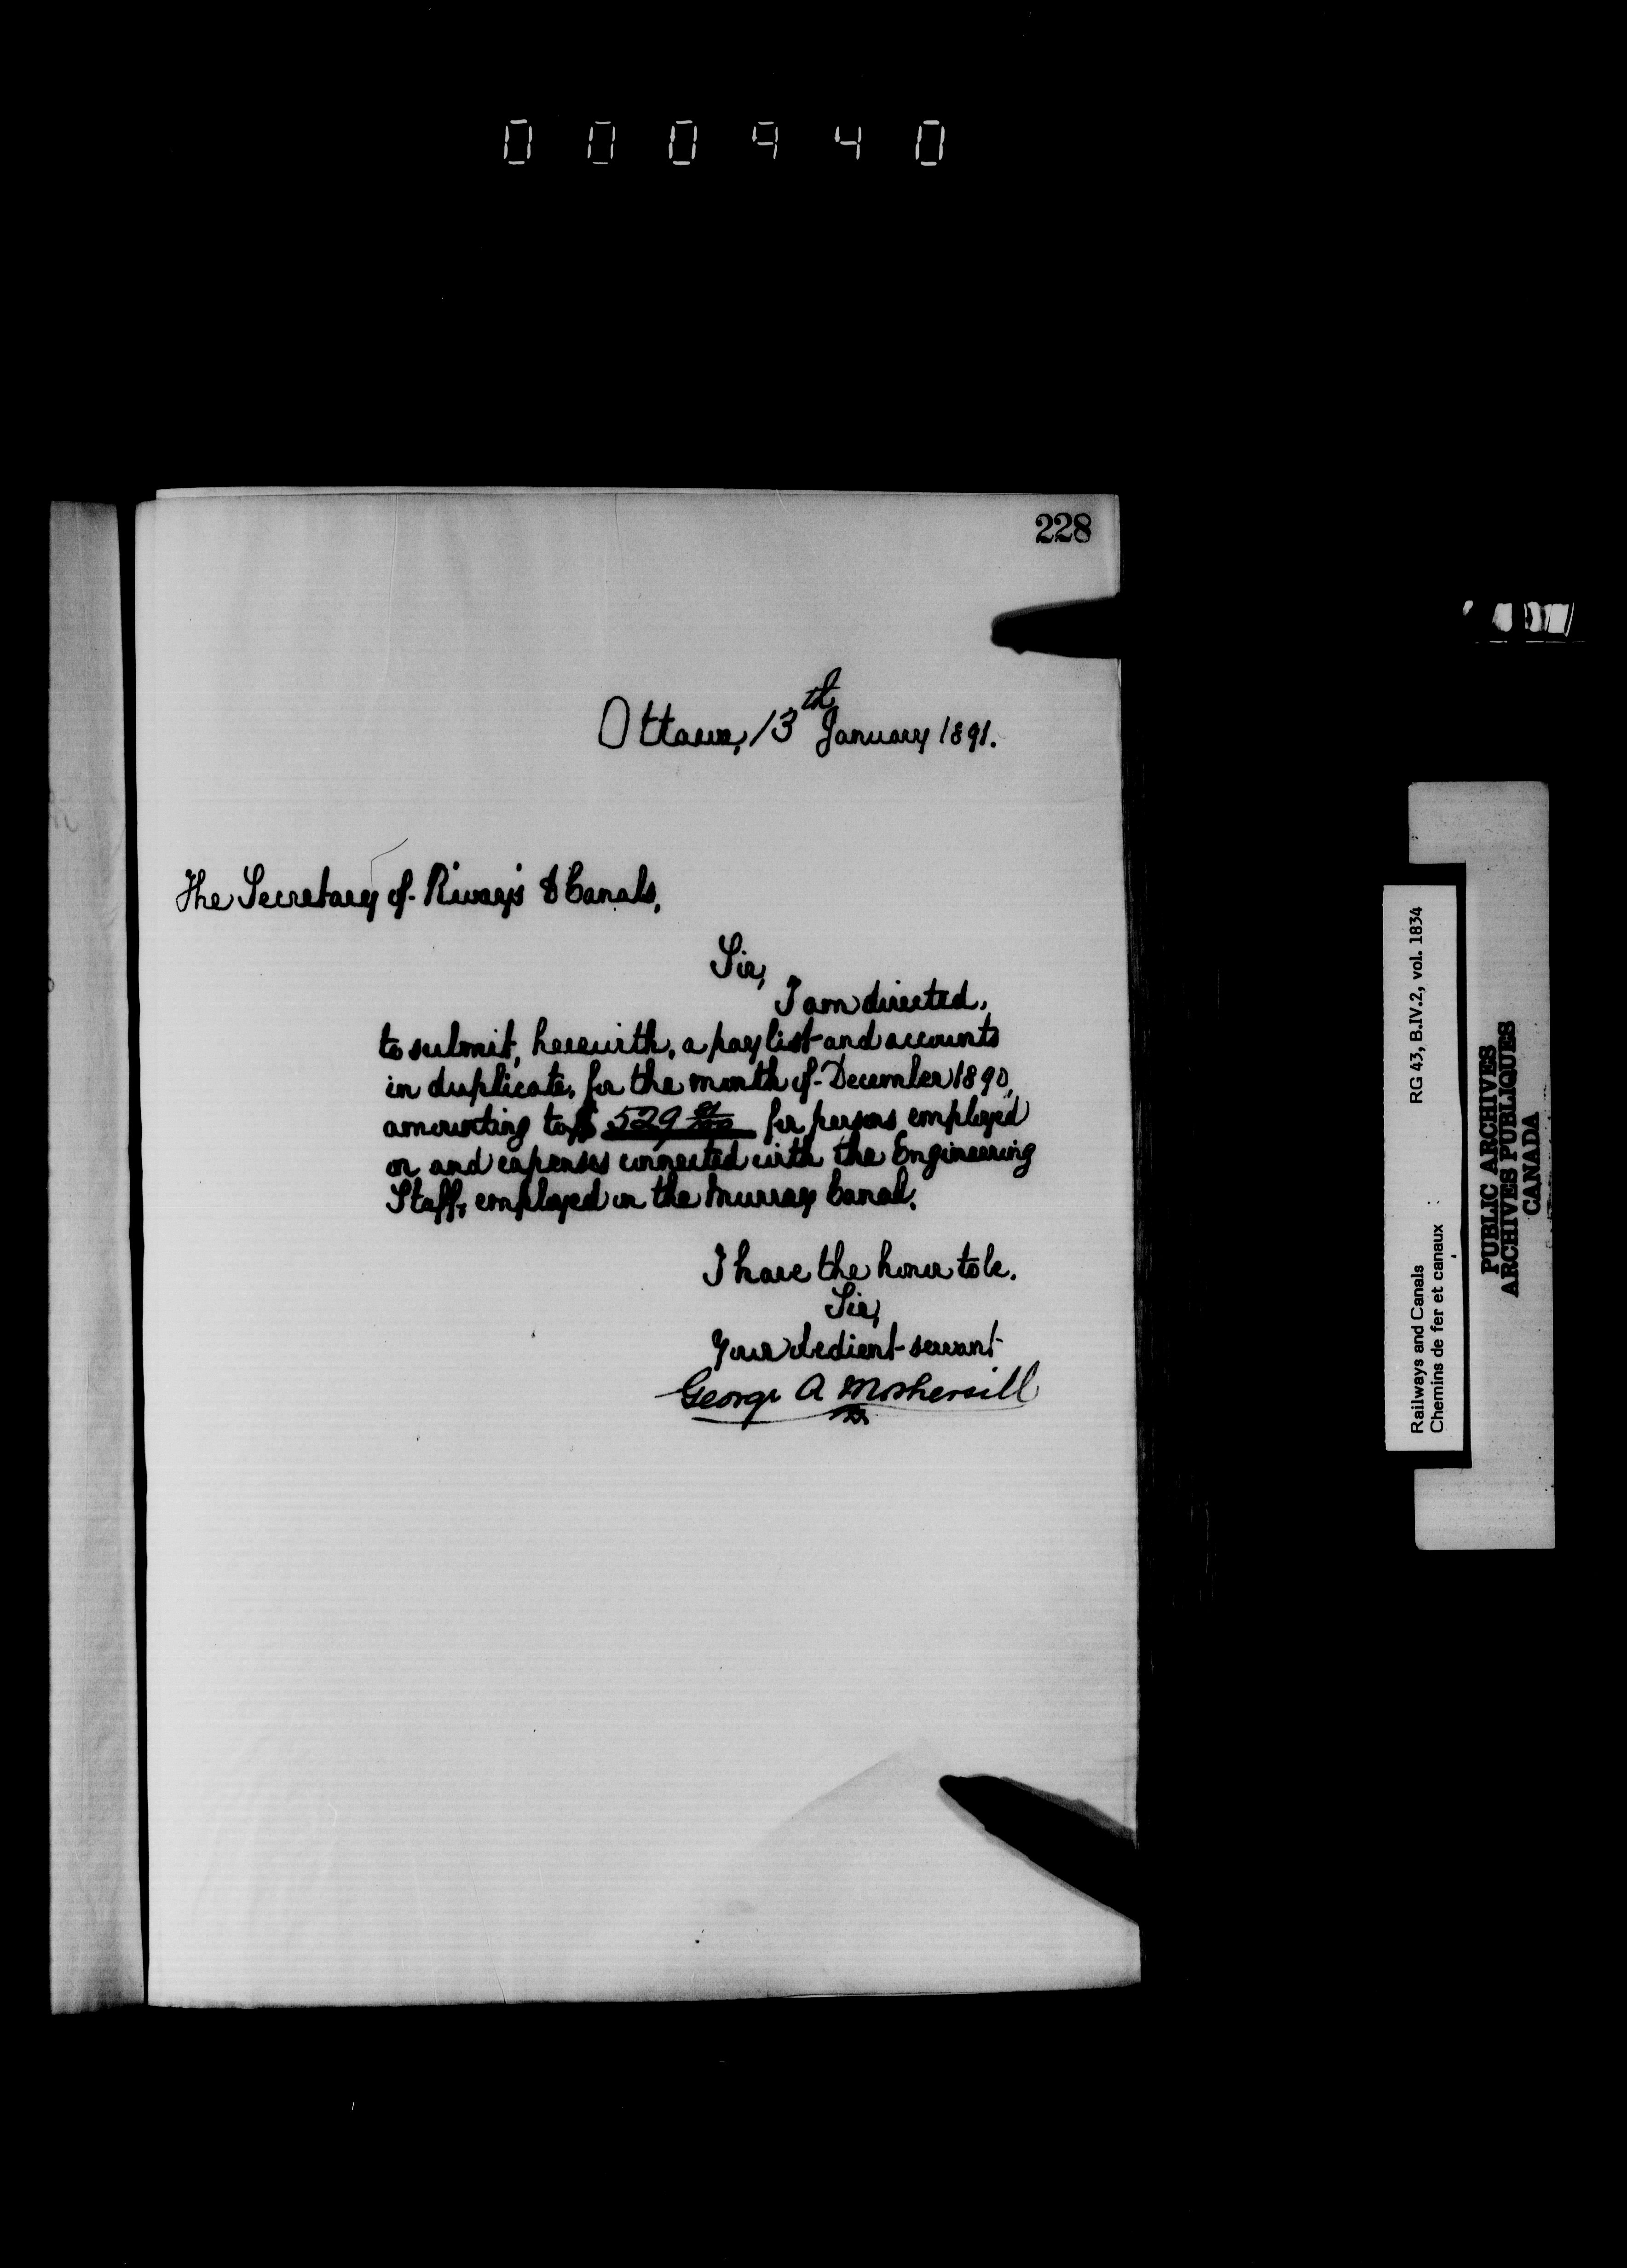 000940
228
Ottawa, 13th January 1891.
The Secretary of Rways & Canals,
Sir,
I am directed,
to submit, herewith, a pay list and accounts
in duplicate, for the month of December 1890,
amounting to $ 529 for persons employed
on and expenses connected with the Engineering
Staff, employed on the Murray Canal.
I have the honor to be,
Sir,
Your obedient servant
George A Mothersill
Railways and Canals RG 43, B.IV.2, vol. 1834
Chemins de fer et canaux
PUBLIC ARCHIVES
ARCHIVES PUBLIQUES
CANADA